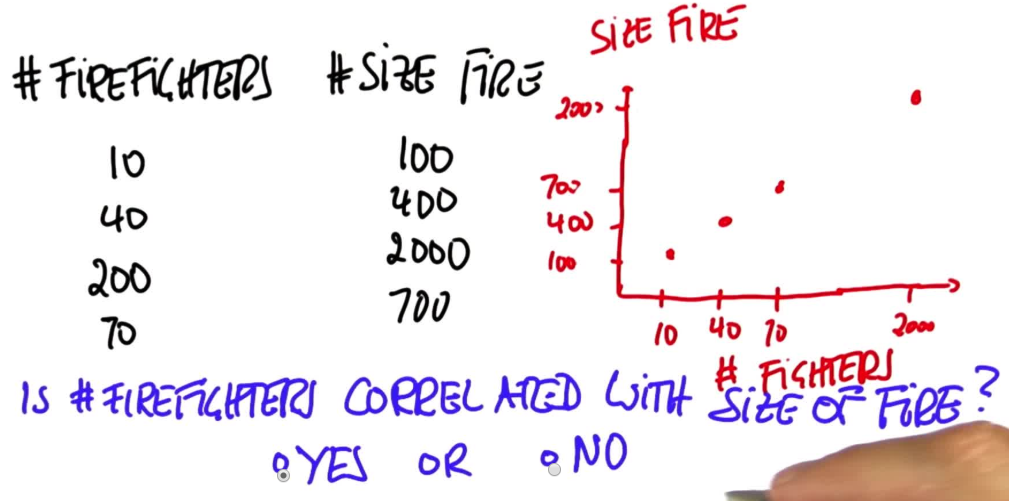 # FIREFIGHTERS # SIZE FIRE
10 100
40 400
200 2000
70 700
SIZE FIRE
2000
700
400
100
10 40 70 2000
# FIGHTERS
IS # FIREFIGHTERS CORRELATED WITH SIZE OF FIRE?
YES OR NO